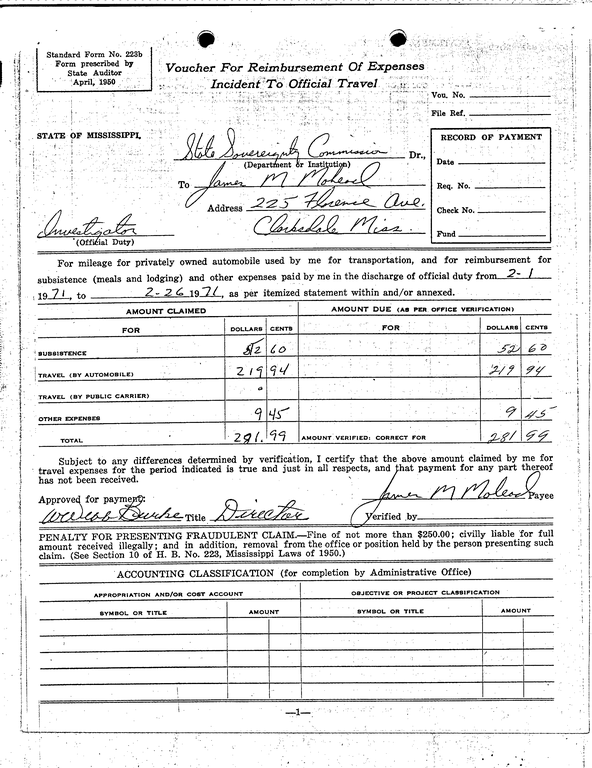 Standard Form No. 223b
Form prescribed by
State Auditor
April, 1950
Voucher For Reimbursement Of Expenses
Incident To Official Travel
Vou. No.
File Ref.
STATE OF MISSISSIPPI,
State Sovereignty Commission Dr.,
(Department or Institution)
To James M Mohead
Address 225 Florence Ave.
Clarksdale Miss.
Investigator
(Official Duty)
RECORD OF PAYMENT
Date
Req. No.
Check No.
Fund
For mileage for privately owned automobile used by me for transportation, and for reimbursement for
subsistence (meals and lodging) and other expenses paid by me in the discharge of official duty from 2-1
1971, to 2-26 1971, as per itemized statement within and/or annexed.
AMOUNT CLAIMED AMOUNT DUE (AS PER OFFICE VERIFICATION)
FOR DOLLARS CENTS FOR DOLLARS CENTS
SUBSISTENCE 52 60 52 60
TRAVEL (BY AUTOMOBILE) 219 94 219 94
TRAVEL (BY PUBLIC CARRIER)
OTHER EXPENSES 9 45 9 45
TOTAL 281.99 AMOUNT VERIFIED: CORRECT FOR 281 99
Subject to any differences determined by verification, I certify that the above amount claimed by me for
travel expenses for the period indicated is true and just in all respects, and that payment for any part thereof
has not been received.
James M Mohead Payee
Approved for payment:
Burke Title Director Verified by
PENALTY FOR PRESENTING FRAUDULENT CLAIM.—Fine of not more than $250.00; civilly liable for full
amount received illegally; and in addition, removal from the office or position held by the person presenting such
claim. (See Section 10 of H. B. No. 223, Mississippi Laws of 1950.)
ACCOUNTING CLASSIFICATION (for completion by Administrative Office)
APPROPRIATION AND/OR COST ACCOUNT OBJECTIVE OR PROJECT CLASSIFICATION
SYMBOL OR TITLE AMOUNT SYMBOL OR TITLE AMOUNT
—1—